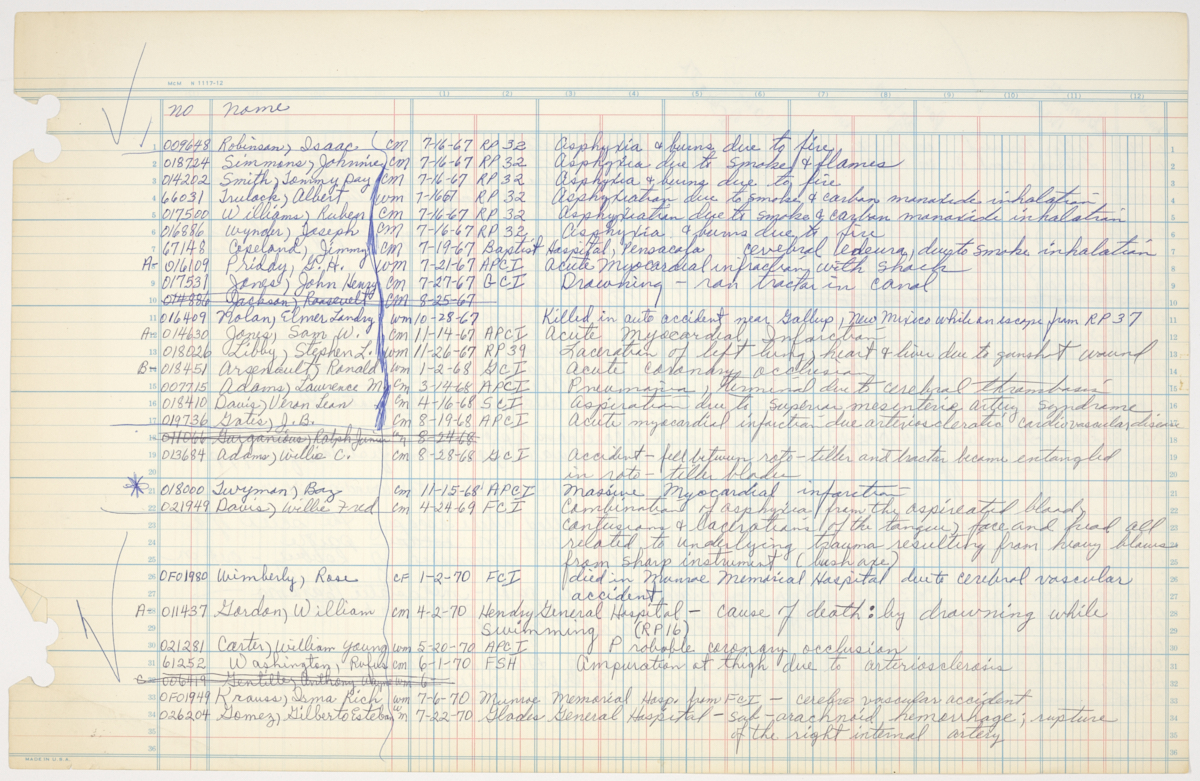 MEM K 1117-12
(1) (2) (3) (4) (5) (6) (7) (8) (9) (10) (11) (12)
no name
1 009648 Robinson, Isaac cm 7-16-67 RP 32 Asphyxia & burns due to fire 1
2 018724 Simmons, Johnnie cm 7-16-67 RP 32 Asphyxia due to smoke & flames 2
3 014202 Smith, Tommy Day cm 7-16-67 RP 32 Asphyxia & burns due to fire 3
4 66031 Trulock, Albert wm 7-1667 RP 32 Asphyxiation due to smoke & carbon monoxide inhalation 4
5 017500 Williams, Ruben cm 7-16-67 RP 32 Asphyxiation due to smoke & carbon monoxide inhalation 5
6 016886 Wynder, Joseph cm 7-16-67 RP 32 Asphyxia & burns due to fire 6
7 67148 Copeland, Jimmy cm 7-19-67 Baptist Hospital, Pensacola cerebral edema, due to smoke inhalation 7
A- 016109 Priday, G. H. wm 7-21-67 APCI Acute Myocardial infraction with shock 8
9 017531 Jones, John Henry cm 7-27-67 GCI Drowning - ran tractor in canal 9
10 014886 Jackson, Roosevelt cm 8-25-67 10
11 016409 Nolan, Elmer Landry wm 10-28-67 Killed in auto accident near Gallup, New Mexico while on escape from RP 37 11
A- 014630 Jones, Sam W. cm 11-14-67 APCI Acute Myocardial Infarction 12
13 018026 Libby, Stephen L. wm 11-26-67 RP 39 Laceration of left lung, heart & liver due to gunshot wound 13
B- 018451 Arsenault, Ronald wm 1-2-68 GCI Acute coronary occlusion 14
15 007715 Adams, Lawrence M. cm 3-14-68 APCI Pneumonia, terminal due to cerebral thrombosis 15
16 018410 Davis, Vern Sean cm 4-16-68 SCI Aspiration due to superior mesenteric artery syndrome 16
17 019736 Gates, J. B. cm 8-19-68 APCI Acute myocardial infarction due arteriosclerotic cardiovascular disease
18 011066 Gurganious, Ralph Junior 8-24-68 18
19 013684 Adams, Willie C. cm 8-28-68 GCI accident - fell between roto-tiller and tractor became entangled 19
20 in roto-tiller blades 20
21 018000 Twyman, Boy cm 11-15-68 APCI Massive Myocardial infarction 21
22 021949 Davis, Willie Fred cm 4-24-69 FCI Combination of asphyxia from the aspireated blood, 22
23 contusions & lacerations of the tongue, face and head all 23
24 related to underlying trauma resulting from heavy blows 24
25 from sharp instrument (bush axe) 25
26 0F01980 Wimberly, Rose cf 1-2-70 FCI died in Munroe Memorial Hospital due to cerebral vascular 26
27 accident 27
A- 011437 Gordon, William cm 4-2-70 Hendry General Hospital - cause of death: by drowning while 28
29 Swimming (RP16) 29
30 021281 Carter, William Young wm 5-20-70 APCI Probable coronary occlusion 30
31 61252 Washington, Rufus cm 6-1-70 FSH Ampuration at thigh due to arteriosclerosis 31
006419 Gentiller Anthony wm 6
33 0F01949 Krauss, Ima Rich wm 7-6-70 Munroe Memorial Hosp. from FCI - cerebro vascular accident 33
34 026204 Gomez, Gilberto Esteban 7-22-70 Glades General Hospital - sub-arachnoid, hemorrhage, rupture 34
35 of the right internal artery 35
36 36
MADE IN U.S.A.